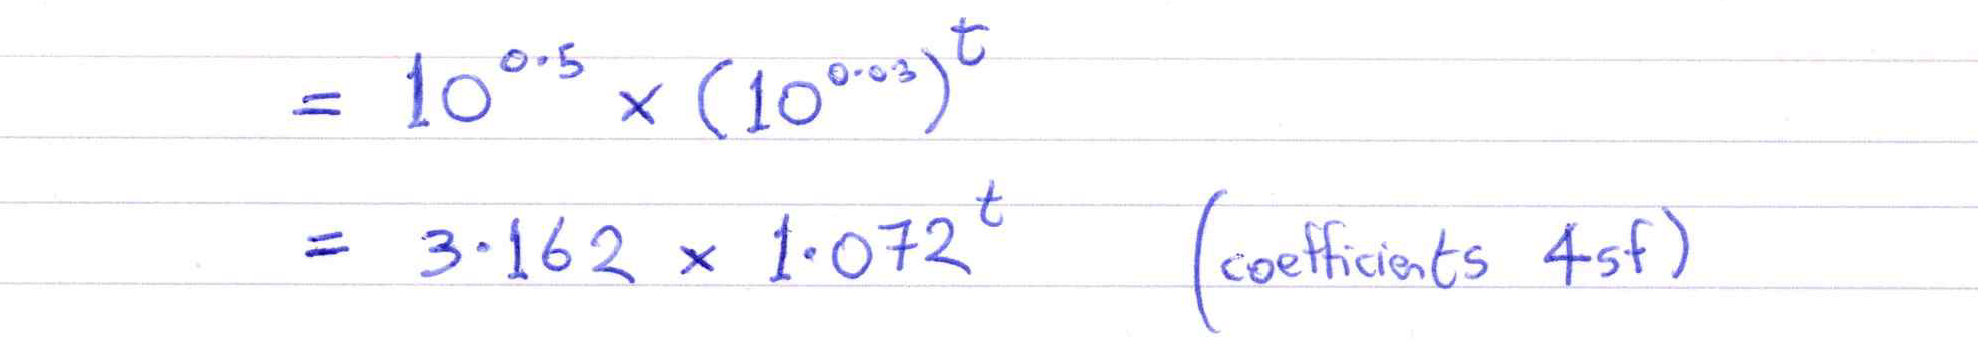 = 10^0.5 × (10^0.03)^t
= 3.162 × 1.072^t (coefficients 4sf)